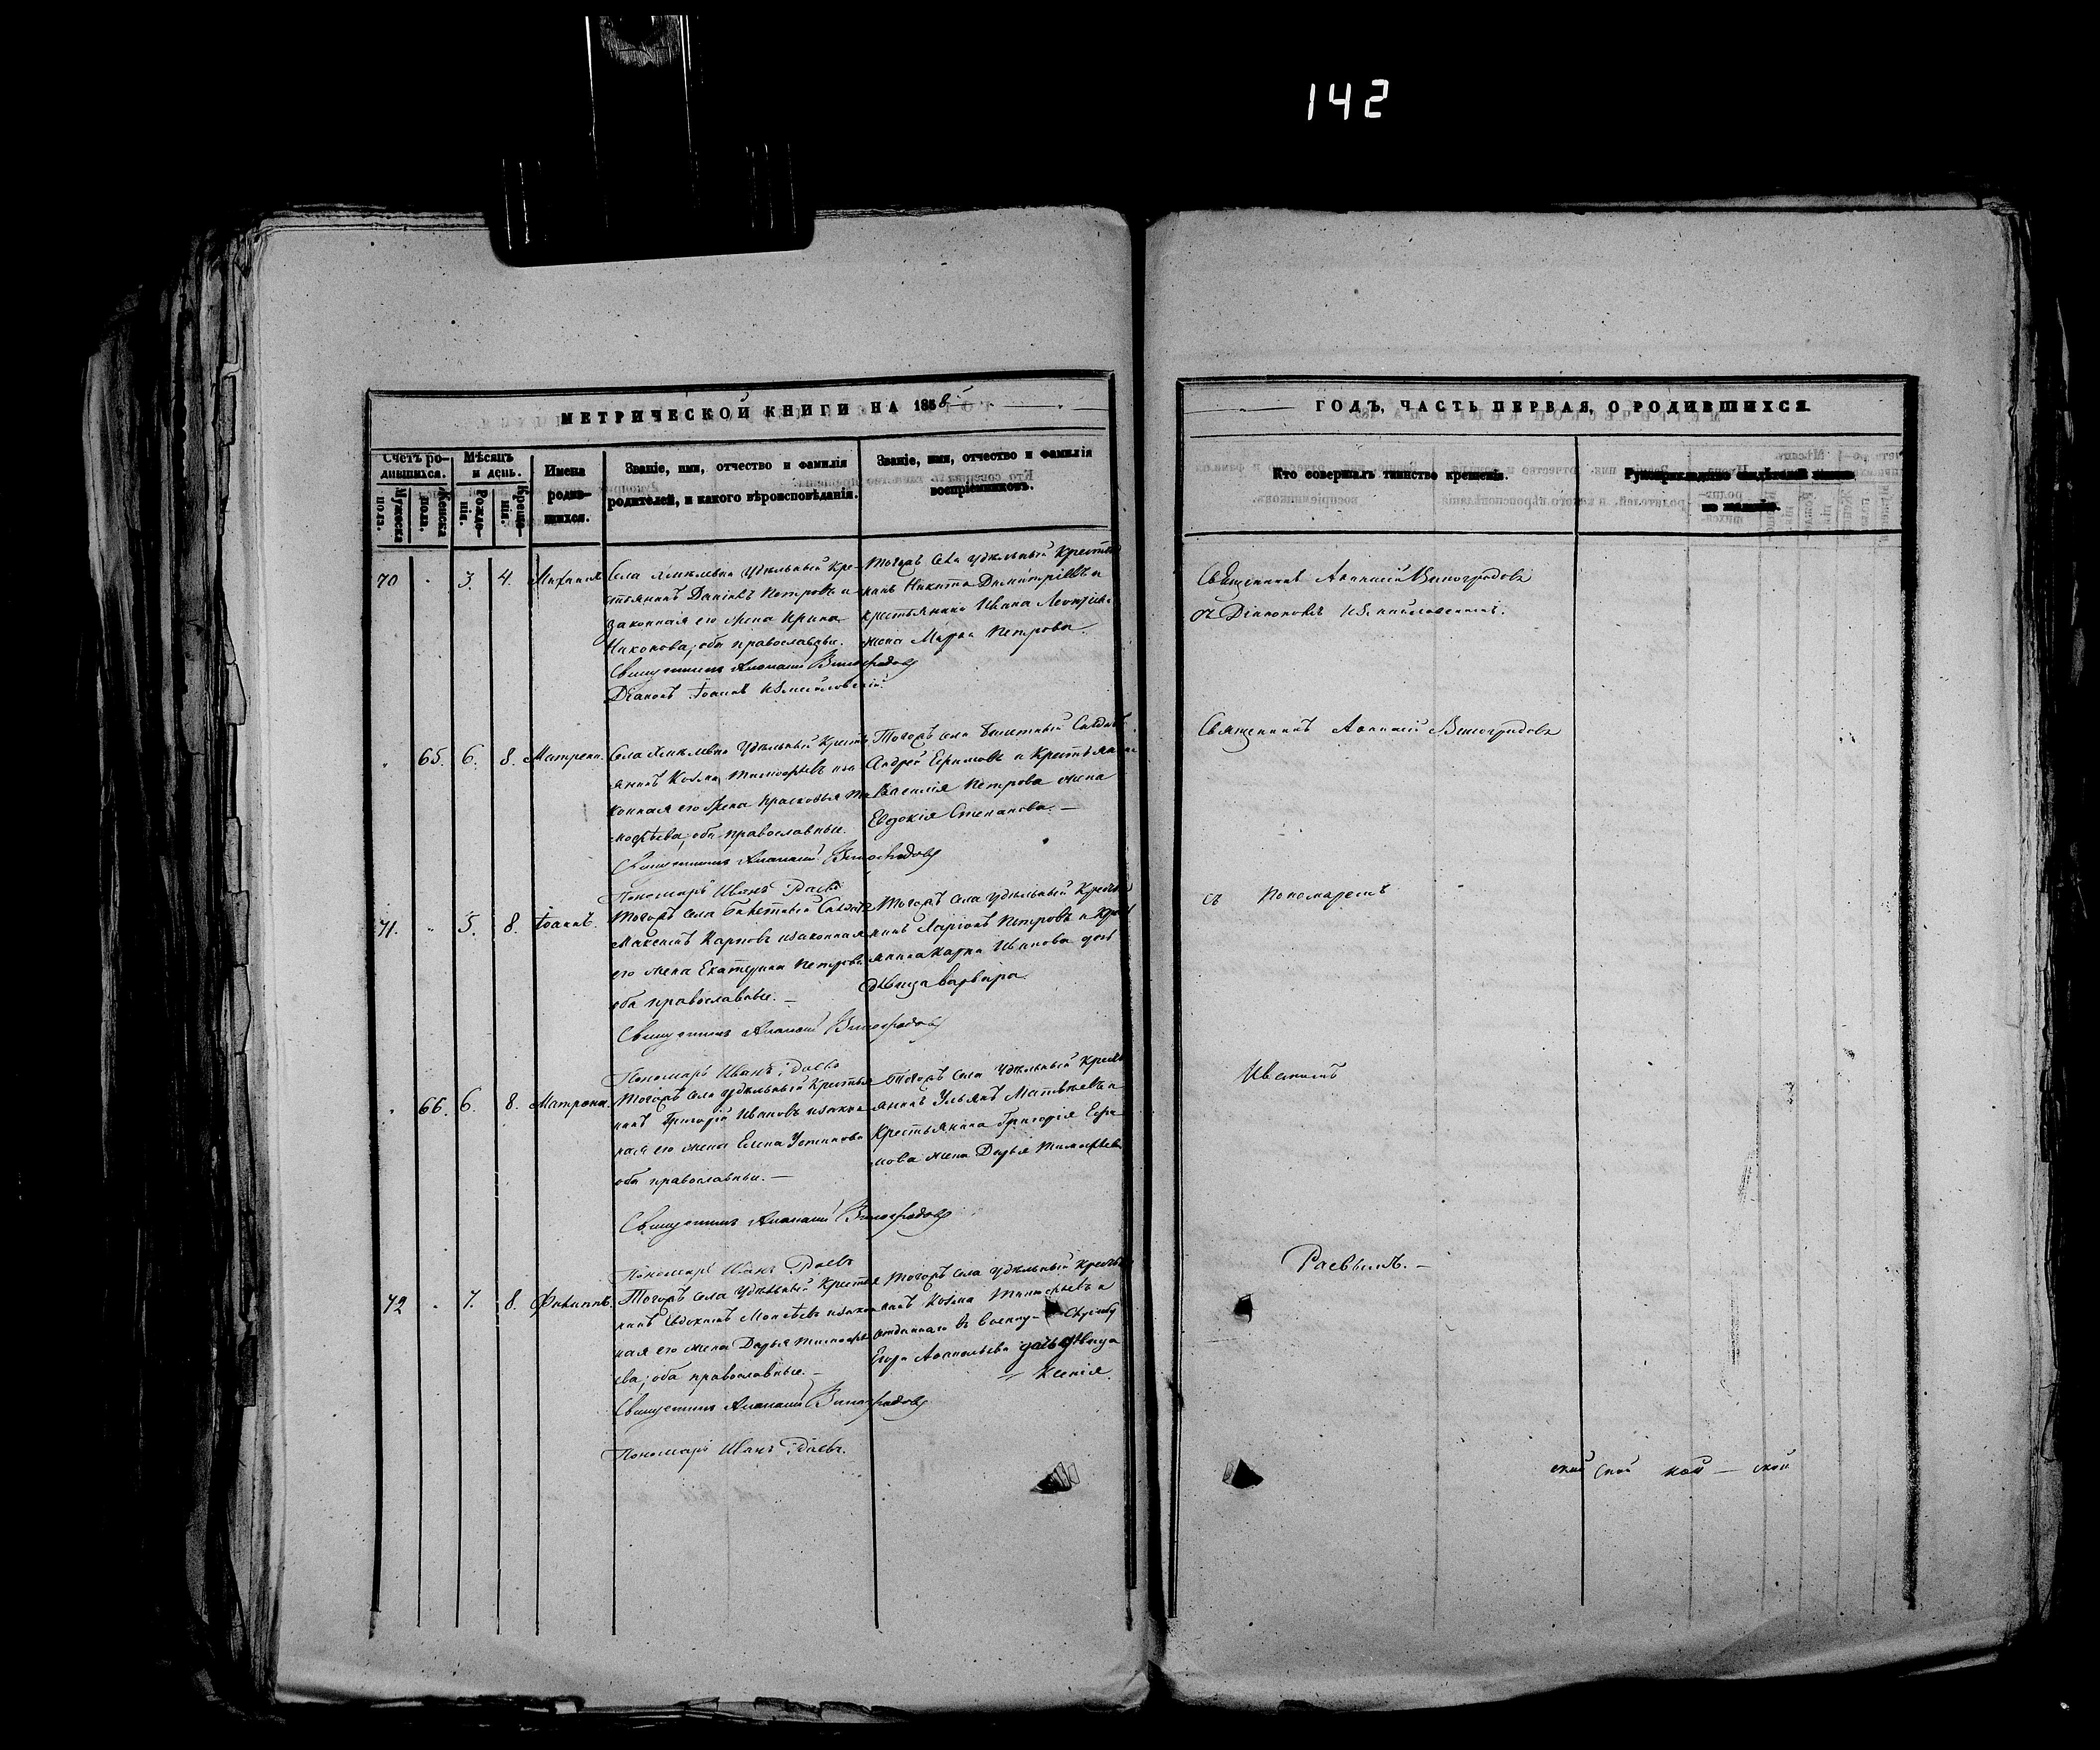 142
МЕТРИЧЕСКОЙ КНИГИ НА 1858
ГОДЪ, ЧАСТЬ ПЕРВАЯ, О РОДИВШИХСЯ.
Счетъ ро-
дившихся.
Мужеска
пола.
Женска
пола.
Мѣсяцъ
и день.
Рожде-
нія.
Креще-
нія.
Имена
роди-
шихся.
Званіе, имя, отчество и фамилія
родителей, и какого вѣроисповѣданія.
Званіе, имя, отчество и фамилія
воспріемниковъ.
Кто совершалъ таинство крещенія.
Рукоприкладство свидѣтелей
70 3. 4. Михаилъ
Села удѣльный кре-
стьянинъ Даніилъ Петровъ и
законная его жена Ирина
Никонова, оба православные.
Священникъ Виноградовъ
Діаконъ Іоаннъ
Тогожъ села удѣльный крестья
нинъ Никита Димитріевъ и
крестьянина Ивана
жена Марѳа Петрова.
Священникъ Виноградовъ
съ Діакономъ
65. 6. 8. Матрона.
Села удѣльный кресть
янинъ Козма Тимофѣевъ иза
конная его жена Прасковья Ти
мофѣева, оба православные.
Священникъ Виноградовъ
Пономарь Иванъ Раевъ
Тогожъ села билетный Солдатъ
Андрей Ефимовъ и крестьянина
Василія Петрова жена
Евдокія Степанова. —
Священникъ Виноградовъ
71. 5. 8. Іоаннъ.
Тогожъ села билетный Солдатъ
Максимъ Карповъ изаконная
его жена Екатерина Петрова
оба православные. —
Священникъ Виноградовъ
Пономарь Иванъ Раевъ
Тогожъ села удѣльный кресть
нинъ Ларіонъ Петровъ и
янина Ивановa дочь
дѣвица Варвара.
съ Пономаремъ
66. 6. 8. Матрона.
Тогожъ села удѣльный крестья
нинъ Григорій Ивановъ изакон
ная его жена Елена Устинова
оба православные. —
Священникъ Виноградовъ
Пономарь Иванъ Раевъ
Тогожъ села удѣльный кресть
янинъ Ульянъ Матвѣевъ и
Крестьянина Григорія Ефи
мова жена Дарья Тимофѣева
Иваномъ
72 7. 8. Филиппъ.
Тогожъ села удѣльный крестья
нинъ Евдокимъ Моисѣевъ изакон
ная его жена Дарья Тимофѣ
ева, оба православные. —
Священникъ Виноградовъ
Пономарь Иванъ Раевъ.
Тогожъ села удѣльный кресть
янинъ Козма Тимофѣевъ и
отданнаго въ военную службу
Егора дочь дѣвица
Ксенія.
Раевымъ. —
ской ской кой — ской